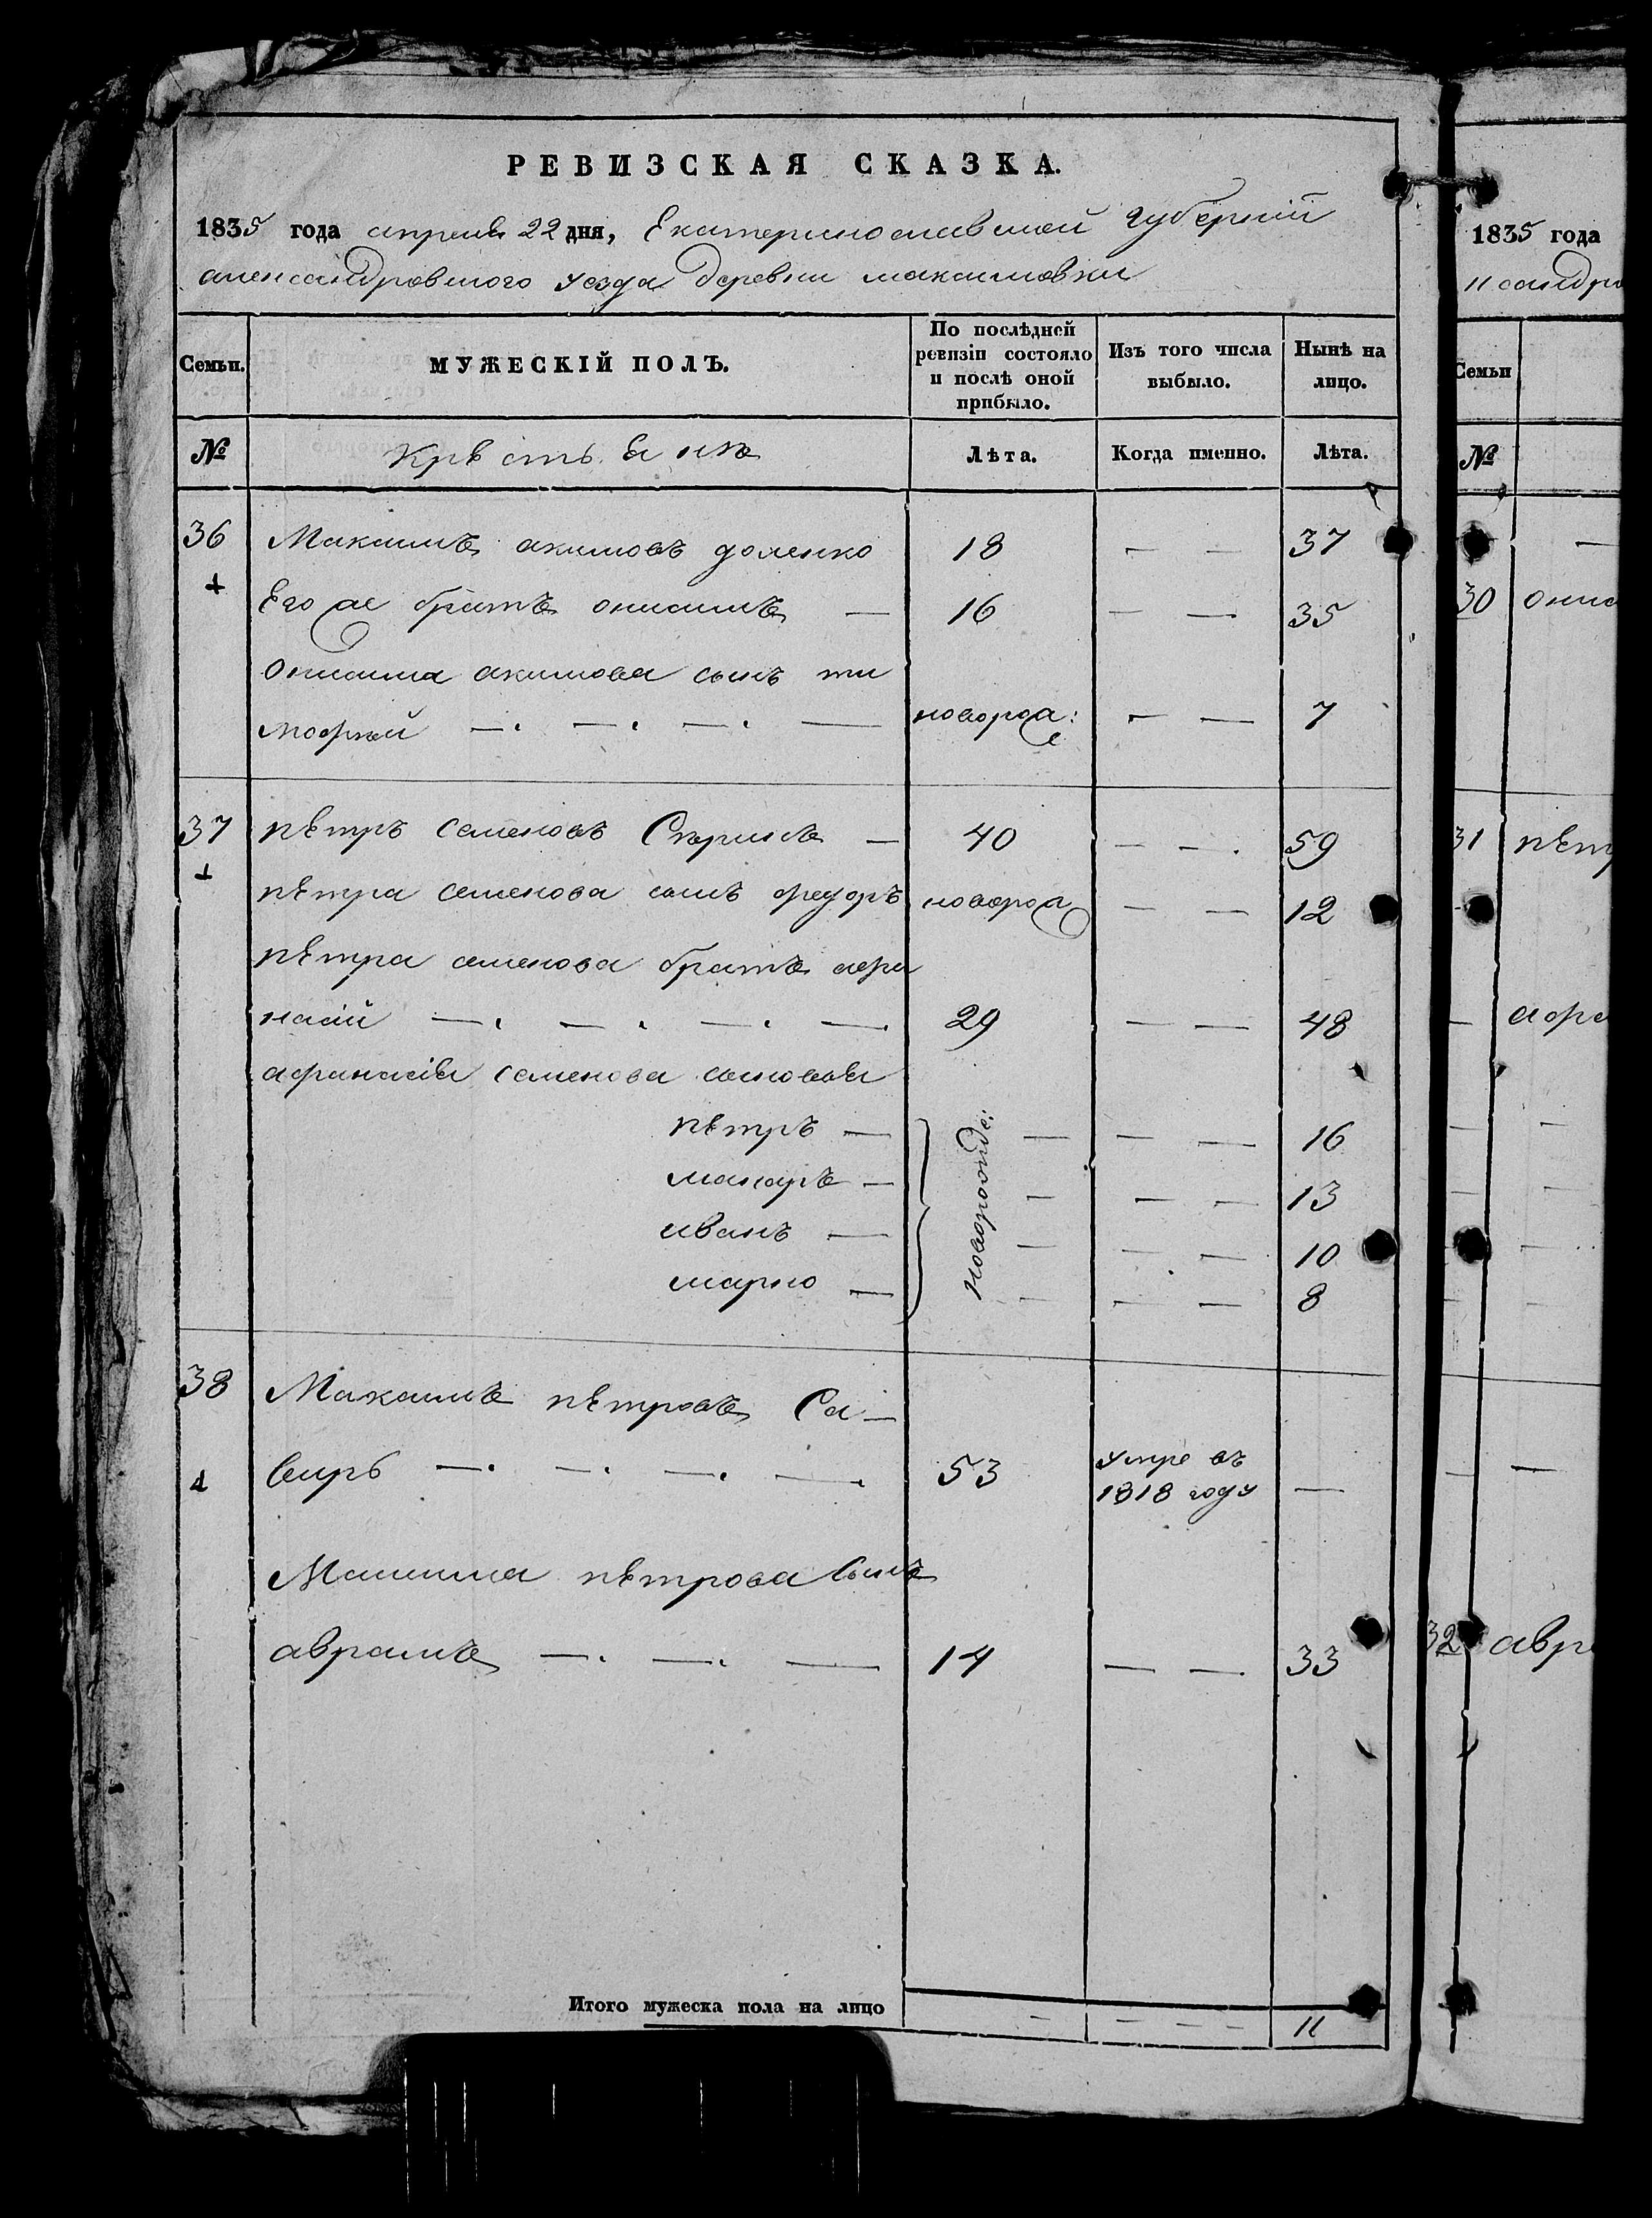 РЕВИЗСКАЯ СКАЗКА.
1835 года апреля 22 дня, Екатеринославской губернiи
александровского уезда деревни максимовки
Семьи. МУЖЕСКIЙ ПОЛЪ. По послѣдней ревизiи состояло и послѣ оной прибыло. Изъ того числа выбыло. Нынѣ на лицо.
№ Крестьяне Лѣта. Когда именно. Лѣта.
36 Максимъ акимовъ доленко 18 — — 37
Его же братъ онисимъ — 16 — — 35
Онисима акимова сынъ ти
мофѣй — — — — новорож: — — 7
37 пЕтръ семеновъ — 40 — — 59
пЕтра семенова сынъ федоръ новорож — — 12
пЕтра семенова братъ афа
насiй — — — — 29 — — 48
афанасiя семенова сыновья
пЕтръ — новорожде: — — — 16
макаръ — — — — 13
иванъ — — — — 10
марко — — — — 8
38 Максимъ пЕтровъ Си—
вирь — — — — 53 умре въ 1818 году —
Максима пЕтрова сынъ
аврамъ — — — 14 — — 33
Итого мужеска пола на лицо — — — — 11
1835 года
Семьи
№
—
30 онис
31 пЕтр
— афа
32 авра